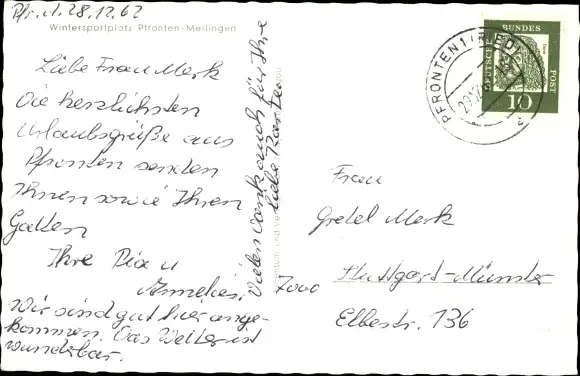 Pfr. d. 28.12.62
Wintersportplatz Pfronten-Meilingen
Liebe Frau Merk
Die herzlichsten
Urlaubsgrüße aus
Pfronten senden
Ihnen sowie Ihren
Gatten
Ihre Pia u
Annelies.
Wir sind gut hier ange-
kommen. Das Wetter ist
wunderbar.
Vielen Dank auch für Ihre
liebe Karte
DEUTSCHE
BUNDES
POST
10
PFRONTEN 1 (RIED)
a
Frau
Gretel Merk
7000 Stuttgart-Münster
Elbestr. 136